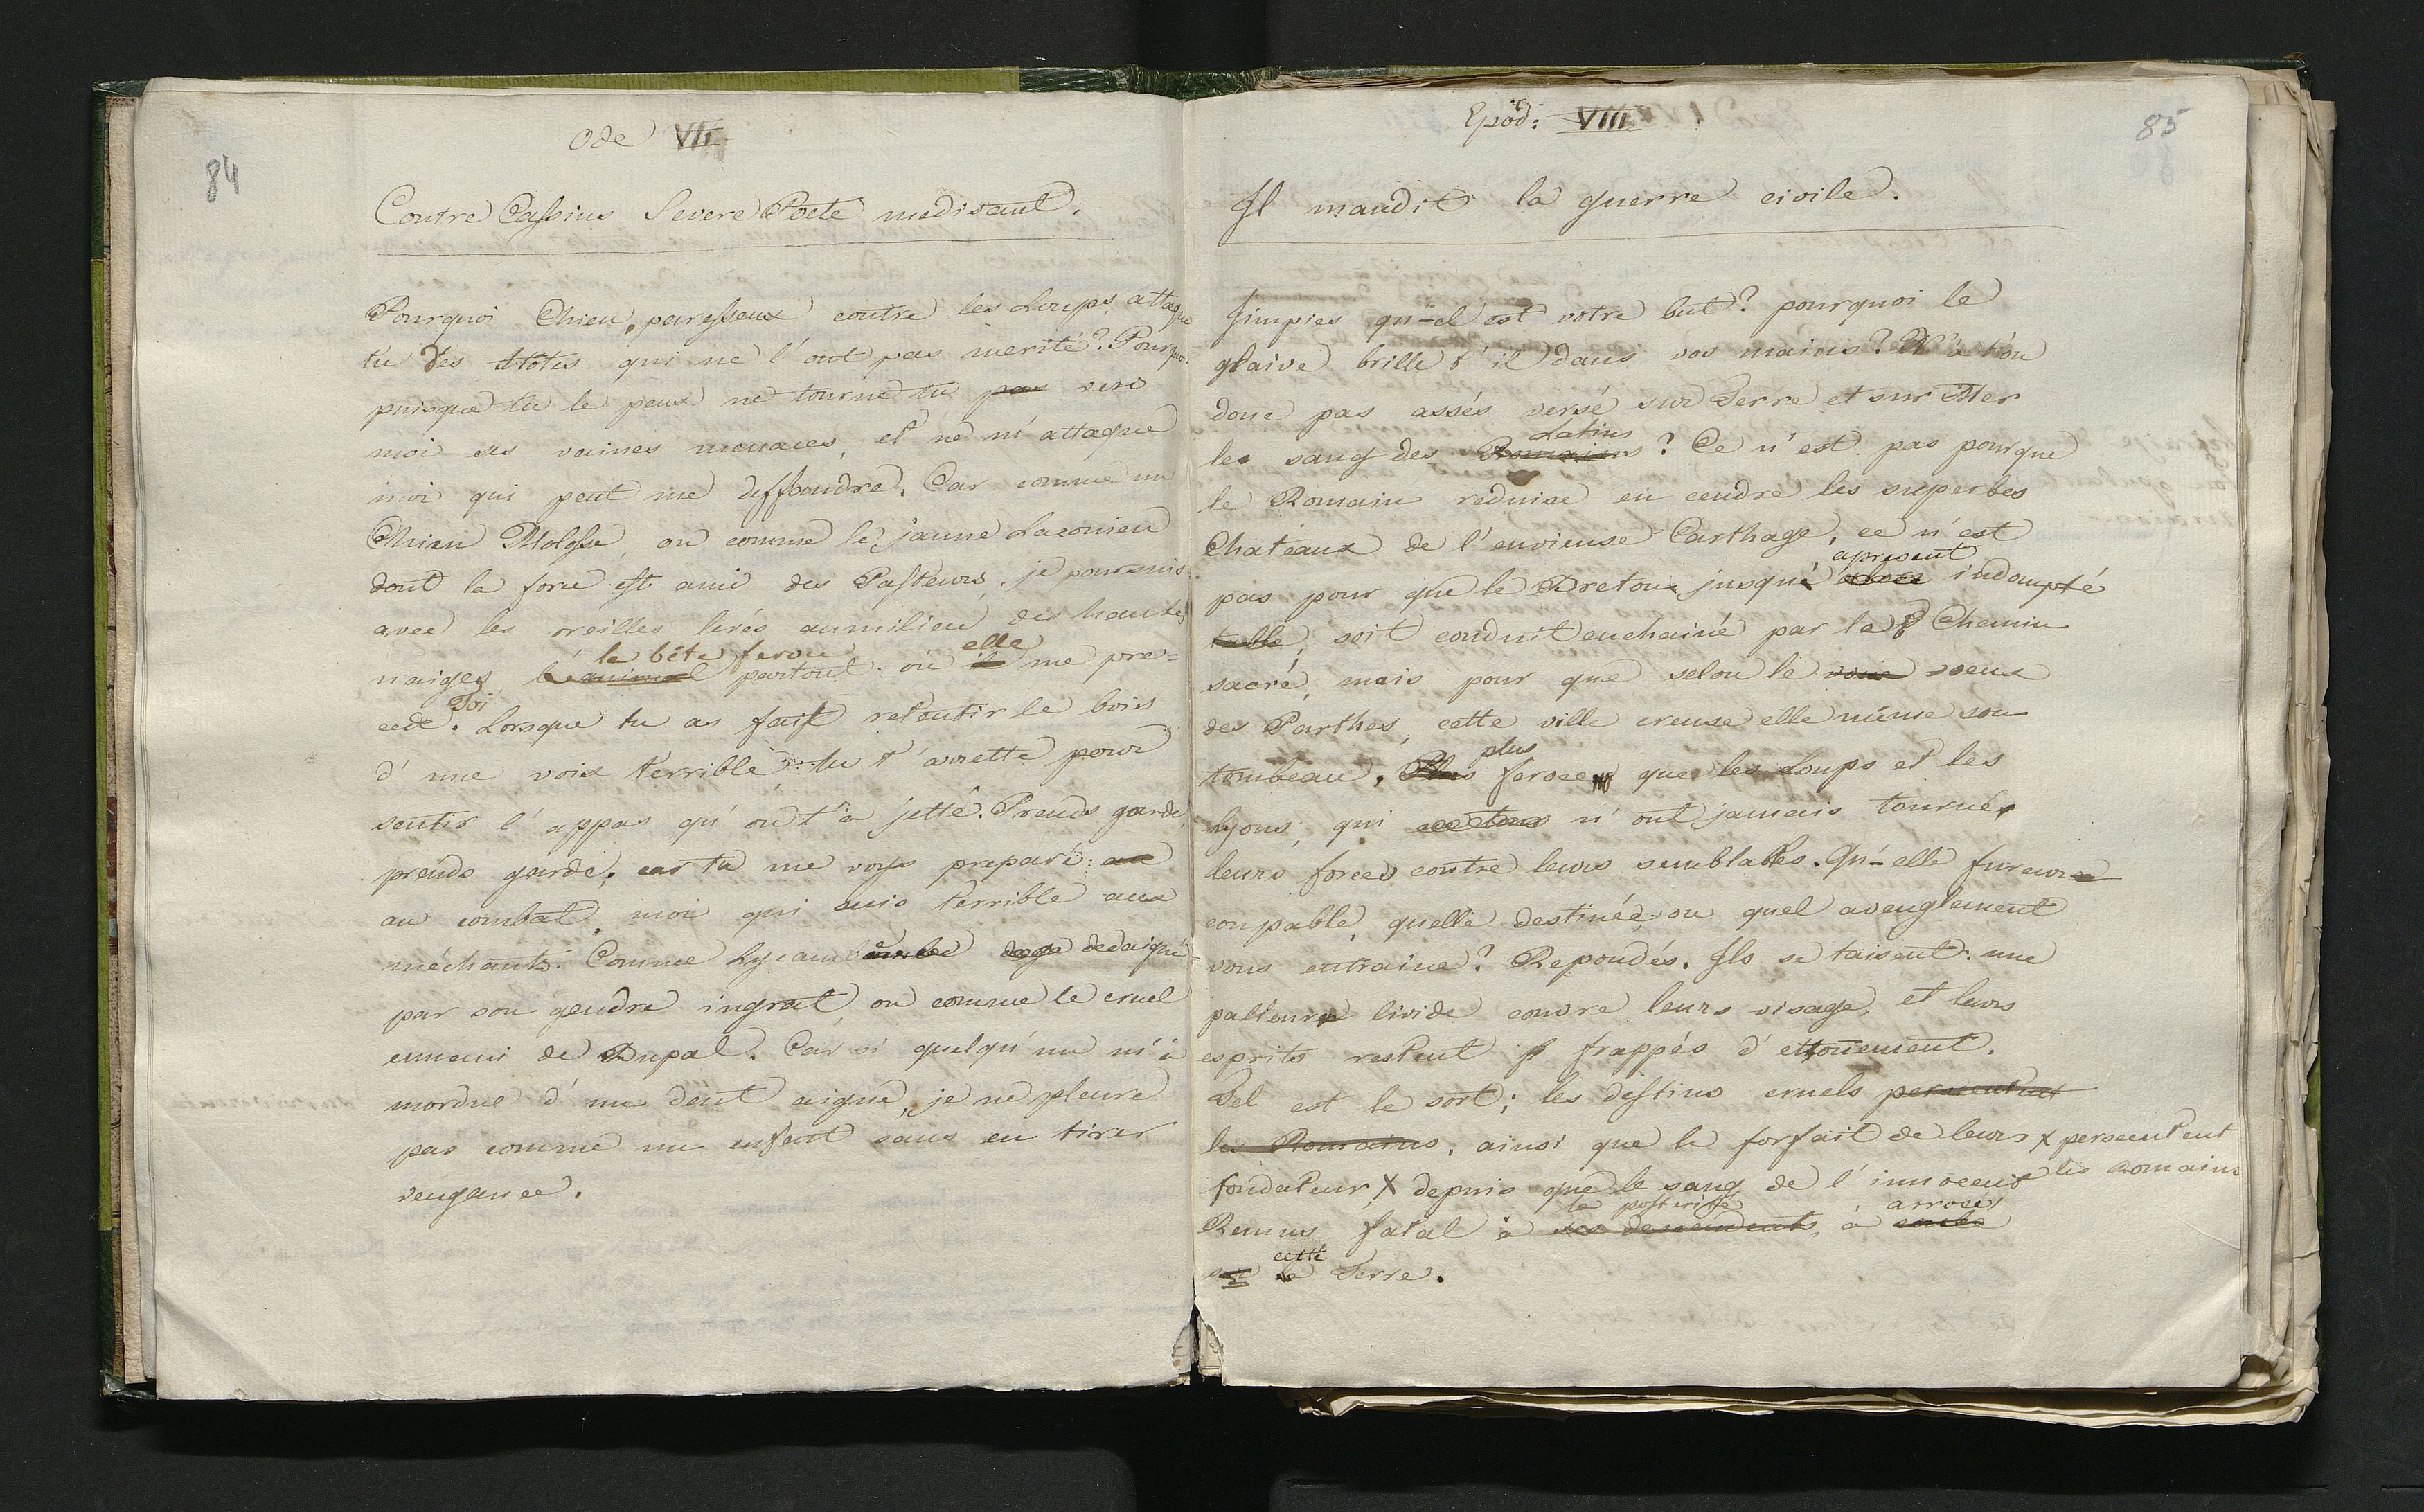 84
Ode VII
Contre Cassius Severe Poete medisant.
Pourquoi Chien, paresseux contre les Loups, attaque
tu des Hôtes qui ne l'ont pas merité? Pourquoi
puisque tu le peux ne tourne tu pas vers
moi tes vaines menaces, et ne m'attaque
moi qui peut me deffendre. Car comme un
Chien Molosse, ou comme le jaune Laconien
dont la force est amie des Pasteurs, je poursuis
avec les oreilles levés aumilieu des hautes
la bête feroce elle
naiges l'animal partout où il me pre=
Toi
cede. Lorsque tu as fait retentir le bois
d'une voix terrible tu t'arrette pour
sentir l'appas qu'on t'a jetté. Prends garde,
prends garde, car tu me voys preparé: au
au combat, moi qui suis terrible aux
méchants. Comme Lycambe dedaigné
par son gendre ingrat, ou comme le cruel
ennemi de Bupal. Car si quelqu'un m'a
mordue d'une dent aiguë, je ne pleure
pas comme un enfant sans en tirer
vengeance.
85
Epod: VIII
Il maudit la guerre civile.
Jimpies qu-el est votre but? pourquoi le
glaive brille t'il dans vos mains? N'a t'on
donc pas assés versé sur Terre et sur Mer
Latins
le sang des Romains? Ce n'est pas pourque
le Romain reduise en cendre les superbes
Chateaux de l'envieuse Carthage, ce n'est
apresent
pas pour que le Breton jusqu'à alors indompté
table, soit conduit enchainé par le Chemin
sacré, mais pour que selon le voeux
des Parthes, cette ville creuse elle même son
plus
tombeau. Plus feroce que les Loups et les
lyons, qui n'ont jamais tourné
leurs forces contre leurs semblables. Qu-elle fureur
coupable, quelle destinée, ou quel aveuglement
vous entraine? Repondés. Ils se taisent: une
palleur livide couvre leurs visage, et leurs
esprits restent frappés d'ettonement.
Tel est le sort; les destins cruels persecutent
les Romains, ainsi que le forfait de leurs x persecutent
fondateur, x depuis que le sang de l'innocent les Romains
la posterité arrosér
Remus fatal à ses descendents, à coulé
cette
sur la Terre.